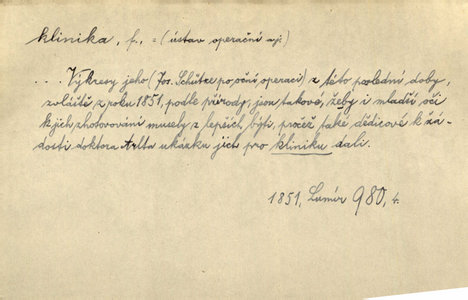 klinika, f., = (ústav operační aj.)
... Výkresy jeho (Jos. Schütze po oční operaci) z této poslední doby,
zvláště z roku 1851, podle přírody, jsou takové, žeby i mladší oči
k jich zhotovování musely z lepších býti, pročež také dědicové k žá-
dosti doktora Arlta ukázku jich pro kliniku dali.
1851, Lumír 980, 4.